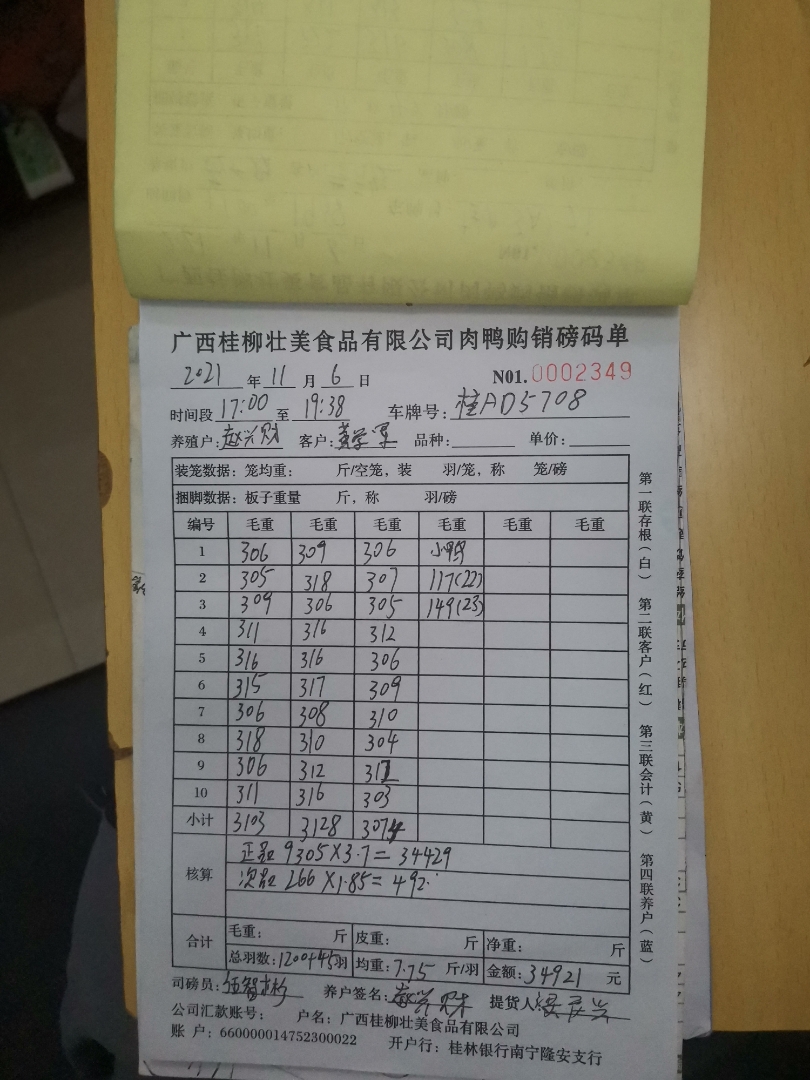 广西桂柳壮美食品有限公司肉鸭购销磅码单
2021 年 11 月 6 日 N01. 0002349
时间段 17:00 至 19:38 车牌号: 桂AD5708
养殖户: 赵兴财 客户: 黄学军 品种: 单价:
装笼数据: 笼均重: 斤/空笼, 装 羽/笼, 称 笼/磅
捆脚数据: 板子重量 斤, 称 羽/磅
编号 毛重 毛重 毛重 毛重 毛重 毛重
1 306 309 306 小鸭
2 305 318 307 117(22)
3 309 306 305 149(23)
4 311 316 312
5 316 316 306
6 315 317 309
7 306 308 310
8 318 310 304
9 306 312 312
10 311 316 303
小计 3103 3128 3074
核算 正品 9305×3.7=34429
次品 266×1.85=492.
合计 毛重: 斤 皮重: 斤 净重: 斤
总羽数: 1200+45羽 均重: 7.75 斤/羽 金额: 34921 元
司磅员: 养户签名: 赵兴财 提货人
公司汇款账号: 户名: 广西桂柳壮美食品有限公司
账 户: 660000014752300022 开户行: 桂林银行南宁隆安支行
第一联存根(白) 第二联客户(红) 第三联会计(黄) 第四联养户(蓝)